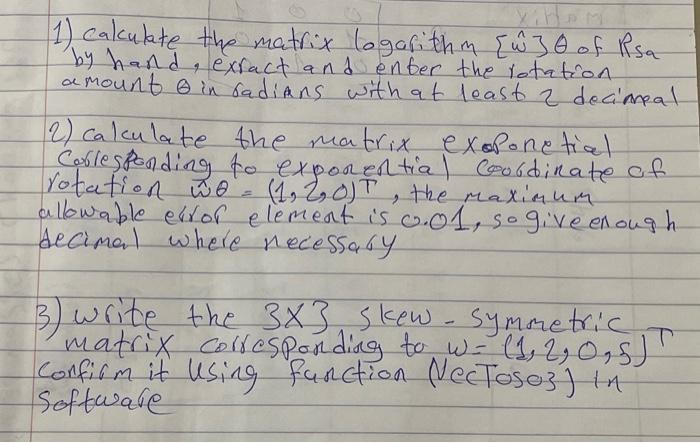 1) calculate the matrix logarithm [ŵ]θ of Rsa
by hand, exract and enter the rotation
amount θ in radians with at least 2 decimpal
2) calculate the matrix exaponetial
Corresponding to exponential Coordinate of
rotation ŵθ = (1,2,0)ᵀ, the maximum
allowable error element is 0.01, so give enough
decimal where necessary
3) write the 3x3 skew-symmetric
matrix corresponding to w= (1,2,0,5)ᵀ
Confirm it using function (VecToso3) in
Software